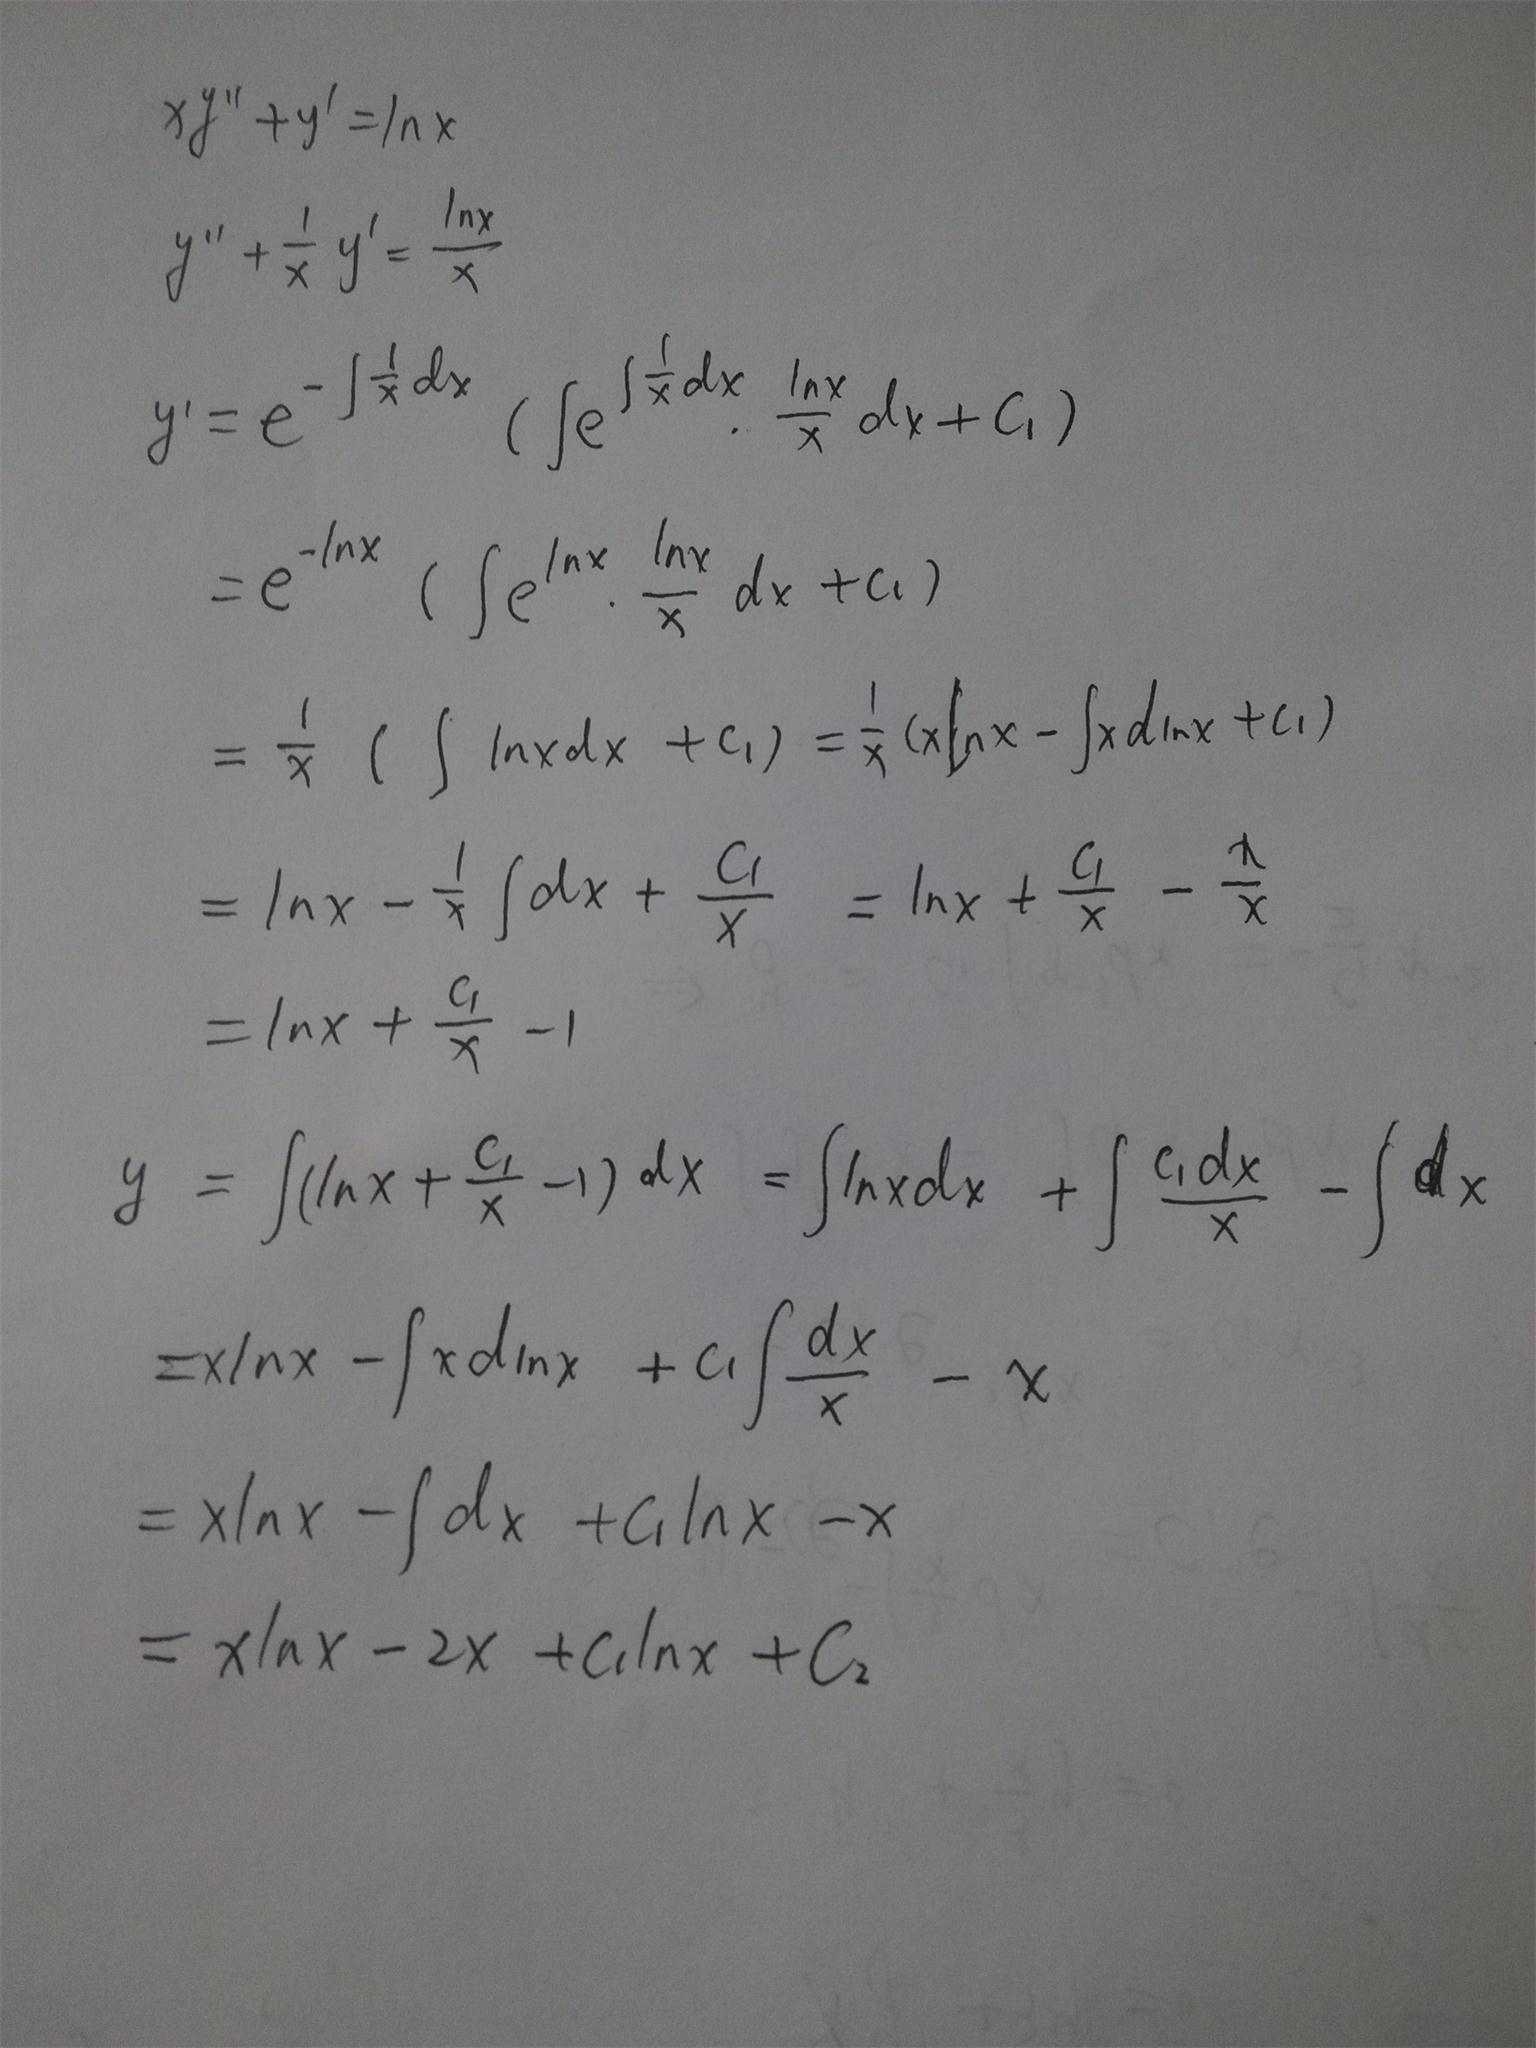 xy'' + y' = lnx
y'' + 1/x y' = lnx/x
y' = e^(-∫ 1/x dx) (∫e^(∫ 1/x dx) · lnx/x dx + C₁)
= e^(-lnx) (∫e^(lnx) · lnx/x dx + C₁)
= 1/x (∫ lnxdx + C₁) = 1/x (xlnx - ∫xdlnx + C₁)
= lnx - 1/x ∫dx + C₁/x = lnx + C₁/x - x/x
= lnx + C₁/x - 1
y = ∫(lnx + C₁/x - 1) dx = ∫lnxdx + ∫ C₁dx/x - ∫dx
= xlnx - ∫xdlnx + C₁∫ dx/x - x
= xlnx - ∫dx + C₁lnx - x
= xlnx - 2x + C₁lnx + C₂